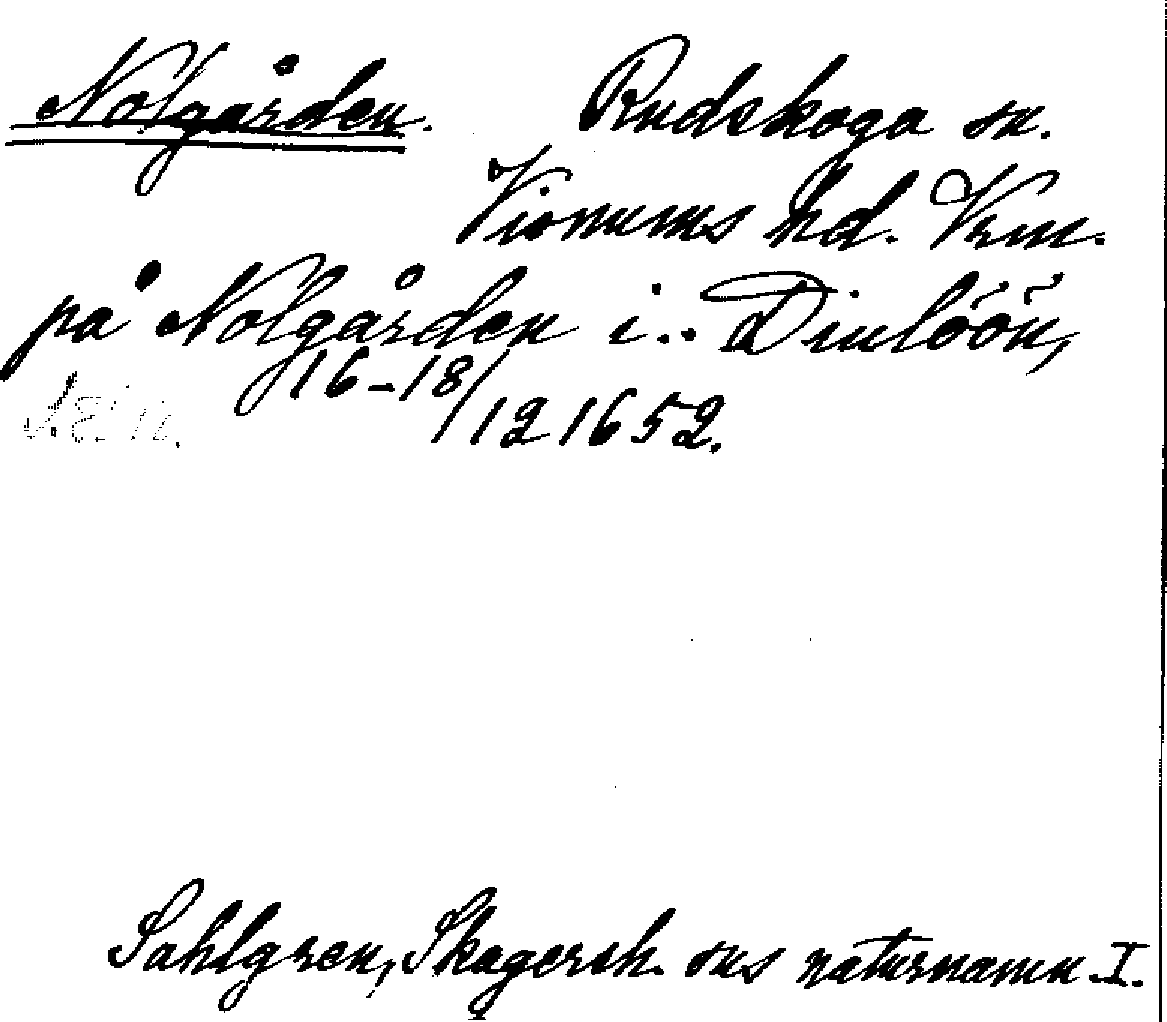 Nolgården. Rudskoga sn.
Visnums hd. Vrm.
på Nolgården i.. Dinlöön,
16-18/12 1652.
Sahlgren, Skagersh. sns naturnamn I.